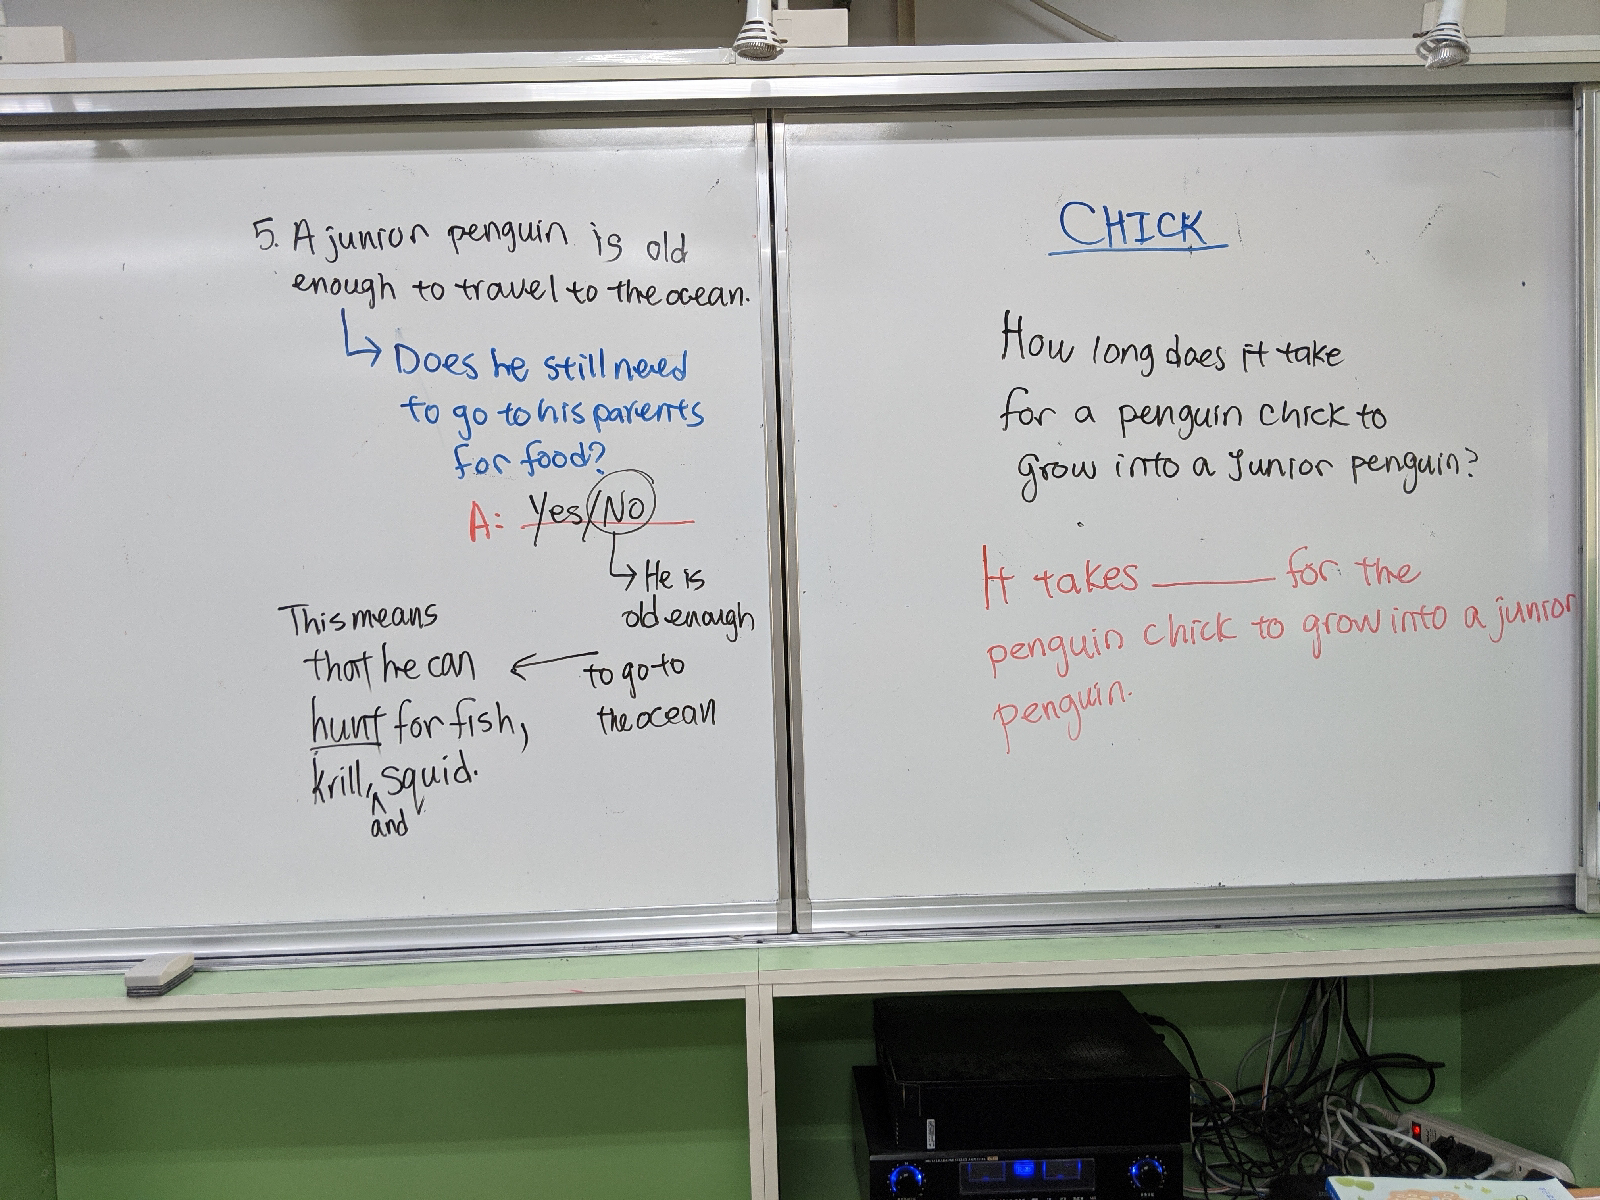 5. A junior penguin is old
enough to travel to the ocean.
Does he still need
to go to his parents
for food?
A: Yes/No
He is
old enough
to go to
the ocean
This means
that he can
hunt for fish,
krill, squid.
and
CHICK
How long does it take
for a penguin chick to
grow into a Junior penguin?
It takes ______ for the
penguin chick to grow into a junior
penguin.